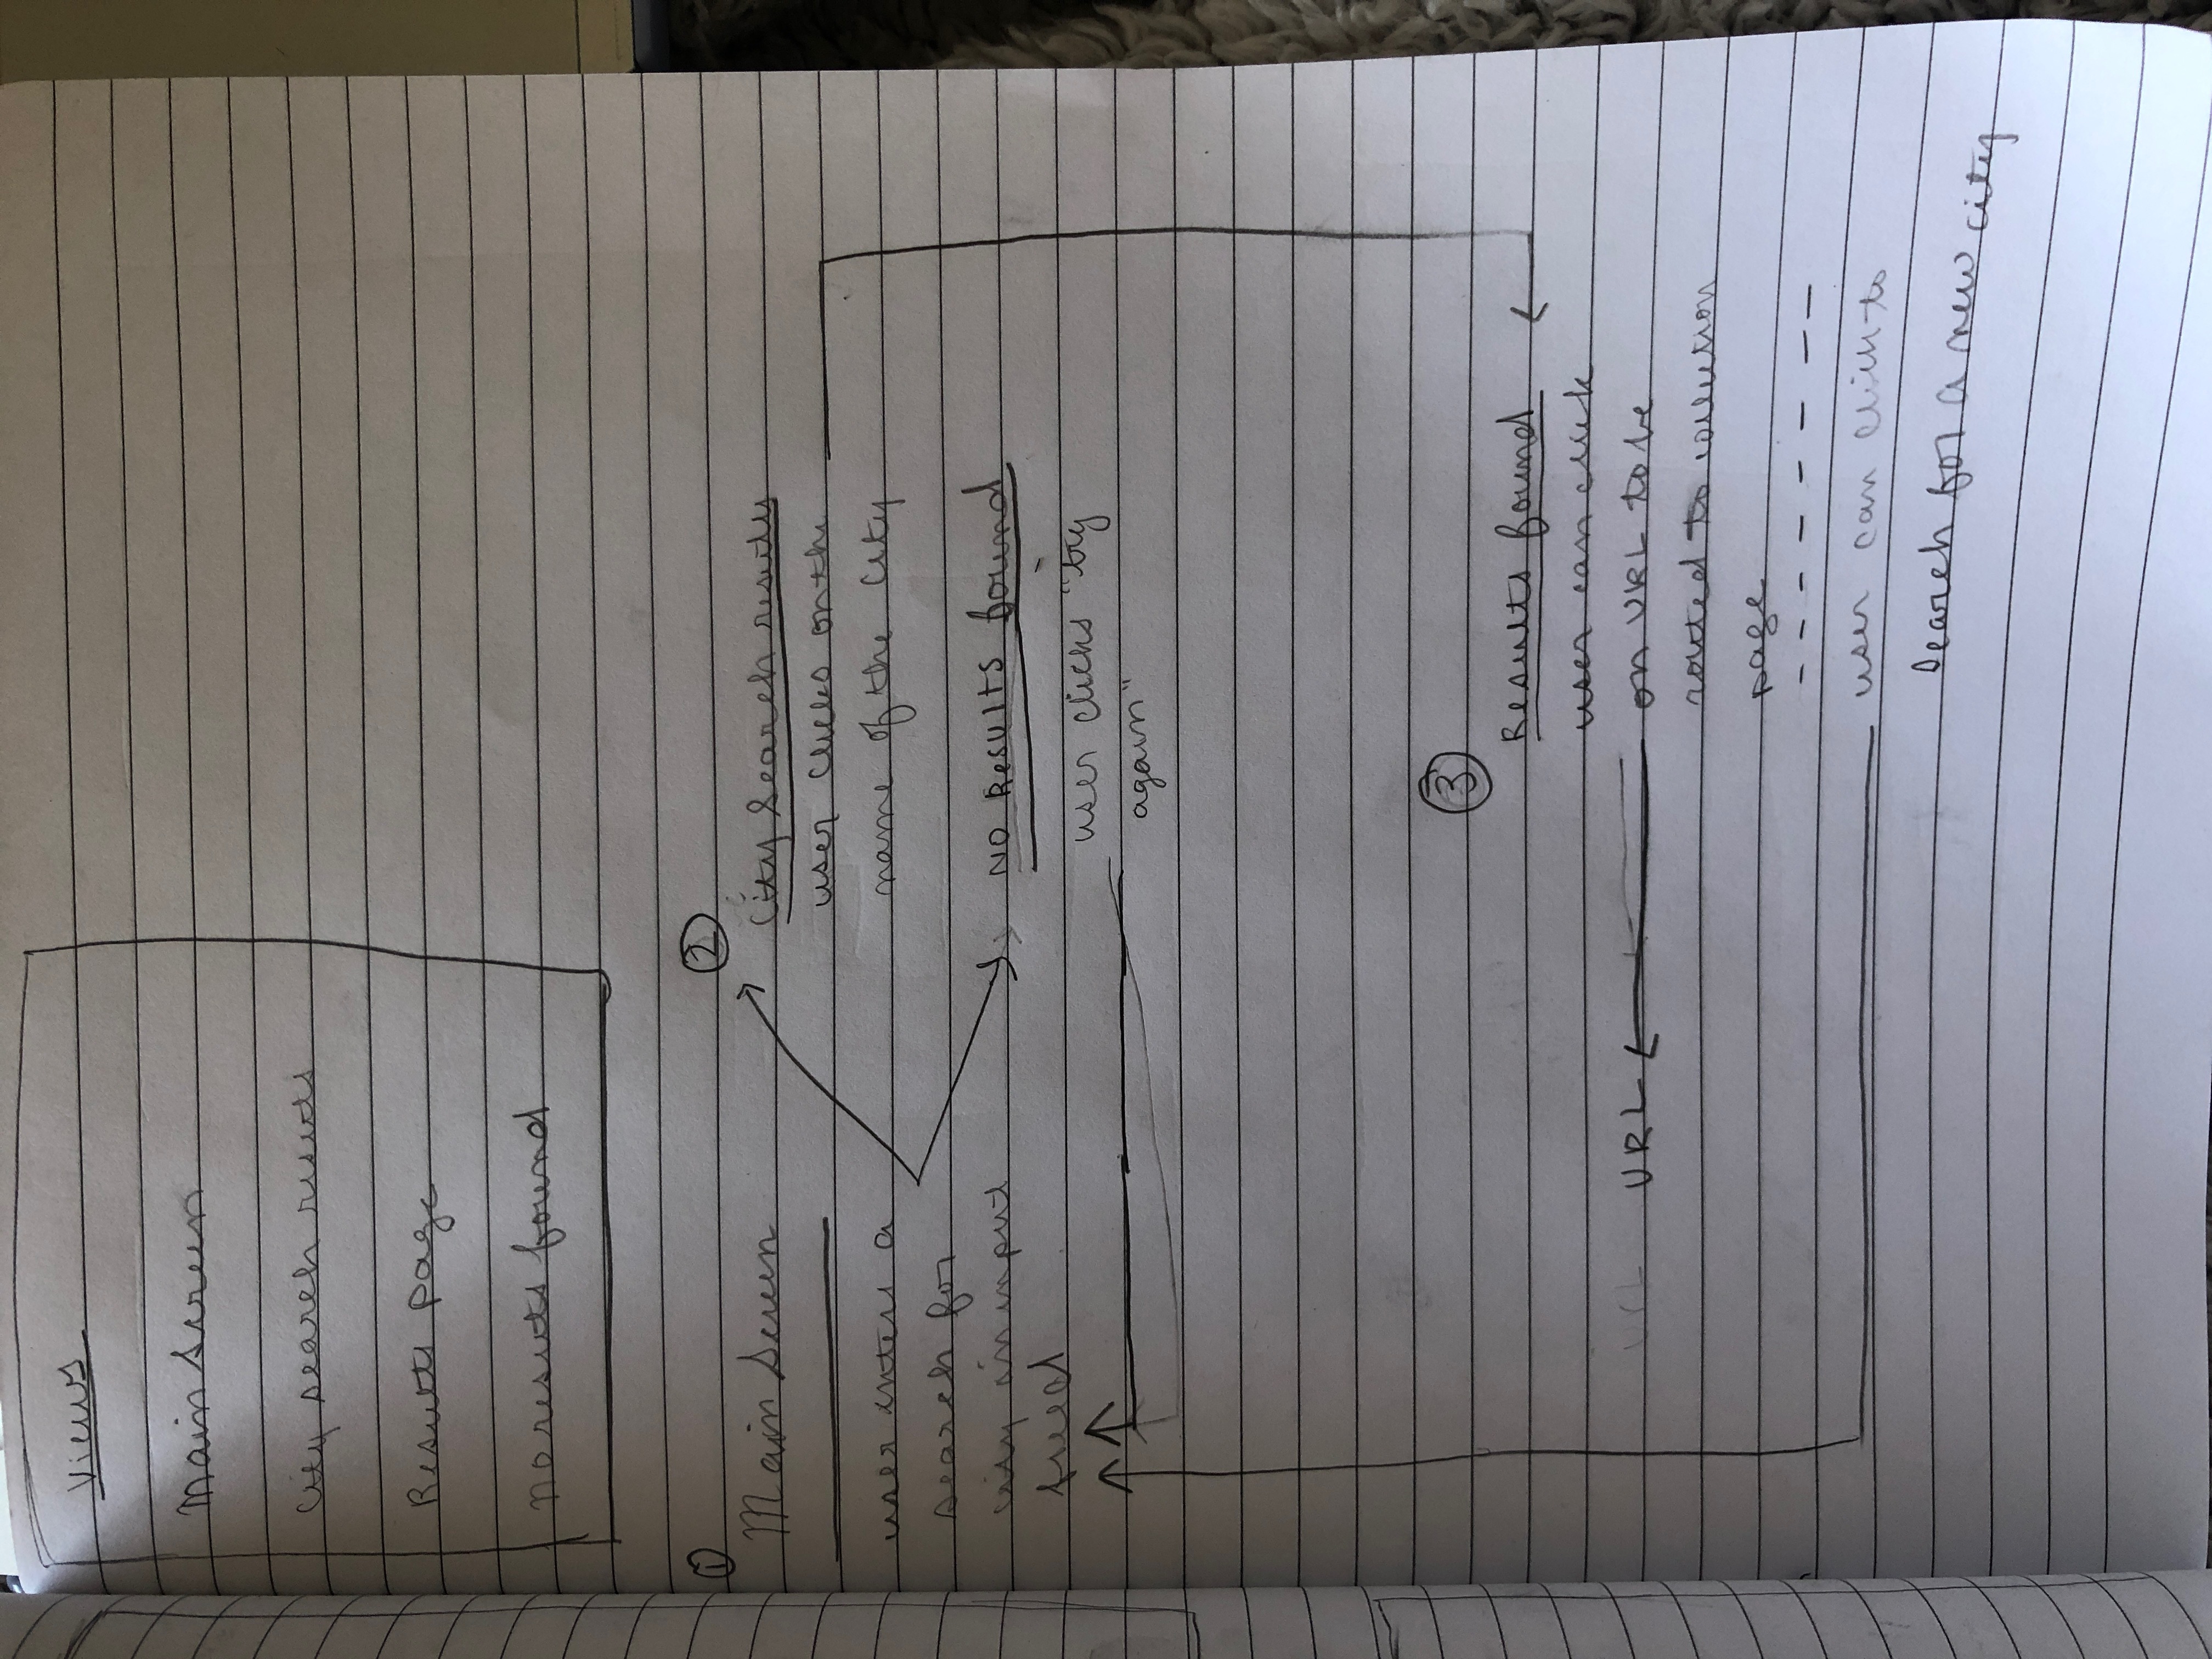 Views
Main Screen
City search results
Results page
No results found
1
Main Screen
user enters a
search for
city in input
field
2
City Search results
user clicks on the
name of the City
No Results found
user clicks "try
again"
3
Results found
user can click
on URL to be
routed to
page
URL
URL
user can click to
Search for a new city